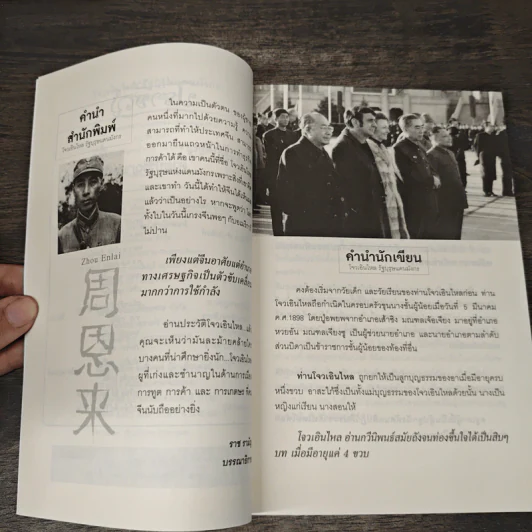 คำนำ
สำนักพิมพ์
โจวเอินไหล รัฐบุรุษแดนมังกร
Zhou Enlai
周
恩
来
ในความเป็นตัวตน ของผู้
คนหนึ่งที่มากไปด้วยความรู้
สามารถที่ทำให้ประเทศจีน
ออกมายืนแถวหน้าในการ
การค้าได้ คือ เขาคนนี้ที่ชื่อ โจวเอินไหล
รัฐบุรุษแห่งแดนมังกรเพราะสิ่งที่
และเขาทำ วันนี้ได้ทำให้จีนได้เห็น
แล้วว่าเป็นอย่างไร หากจะพูดว่า
ทั้งใบในวันนี้เกรงจีนพอๆ กับอเมริกา
ไม่ปาน
เพียงแต่จีนอาศัยแต่อำนาจ
ทางเศรษฐกิจเป็นตัวขับเคลื่อน
มากกว่าการใช้กำลัง
อ่านประวัติโจวเอินไหล แล้ว
คุณจะเห็นว่ามันละม้ายคล้าย
บางคนที่น่าศึกษายิ่งนัก..โจวเอินไหล
ผู้ที่เก่งและชำนาญในด้านการเมือง
การทูต การค้า และ การเกษตร ที่
จีนนับถืออย่างยิ่ง
ราช รามัญ
บรรณาธิการ
คำนำนักเขียน
โจวเอินไหล รัฐบุรุษแดนมังกร
คงต้องเริ่มจากวัยเด็ก และวัยเรียนของท่านโจวเอินไหลก่อน ท่าน
โจวเอินไหลถือกำเนิดในครอบครัวขุนนางชั้นผู้น้อยเมื่อวันที่ 5 มีนาคม
ค.ศ.1898 โดยปู่อพยพจากอำเภอเส้าซิง มณฑลเจ้อเจียง มาอยู่ที่อำเภอ
หวยอัน มณฑลเจียงซู เป็นผู้ช่วยนายอำเภอ และนายอำเภอตามลำดับ
ส่วนบิดาเป็นข้าราชการชั้นผู้น้อยของท้องที่อื่น
ท่านโจวเอินไหล ถูกยกให้เป็นลูกบุญธรรมของอาเมื่อมีอายุครบ
หนึ่งขวบ อาสะใภ้ซึ่งเป็นทั้งแม่บุญธรรมของโจวเอินไหลด้วยนั้น นางเป็น
หญิงแก่เรียน นางสอนให้
โจวเอินไหล อ่านกวีนิพนธ์สมัยถังจนท่องขึ้นใจได้เป็นสิบๆ
บท เมื่อมีอายุแค่ 4 ขวบ